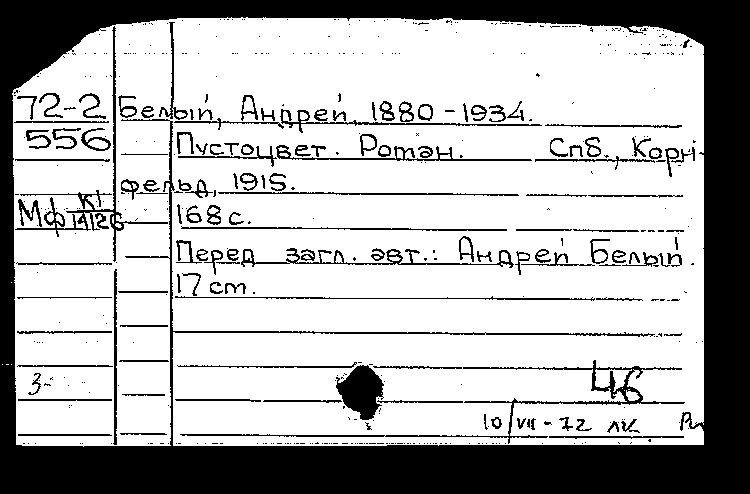 72-2 Белый, Андрей, 1880-1934.
556 Пустоцвет. Роман. Спб., Корн-
фельд, 1915.
Мф К1
14/26 168 с.
Перед загл. авт.: Андрей Белый.
17 см.
3- 46
10/VII-72 лк